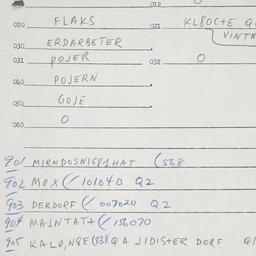 012
020 FLAKS 021 KL80C+E Q
VINTN
030 ERDARBETER
031 POJER 032 O
040 POJERN
050 GOJE
060 O
901 MIRNDOSNIG81HAT (568
902 MOX (/ 101040 Q2
903 DERDORF (/ 007020 Q2
904 MAJNTAT+ (/ 156070
905 KALO,NSE (338 Q A JIDISTER DORF Q1